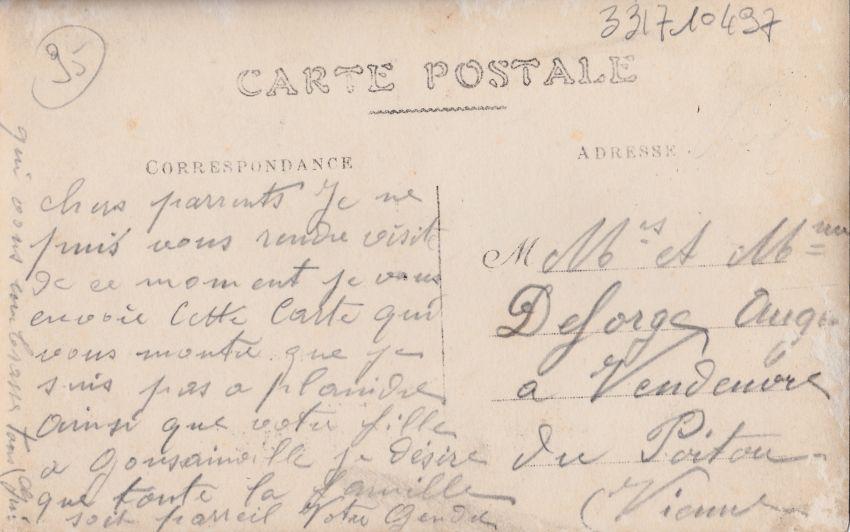 331710497
95
CARTE POSTALE
CORRESPONDANCE
ADRESSE
chers parrents Je ne
puis vous rendre visite
de ce moment je vous
envoie Cette Carte qui
vous montre que je
suis pas a plaindre
ainsi que votre fille
a Gonsainville je désire
que toute la famille
soit parreil Votre Gendre
qui vous embrasse tous
M Mrs et Mme
Deforge Aug
a Vendeuvre
du Poitou
(Vienne